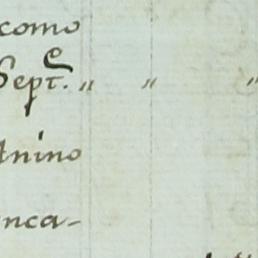 como
Septe. „ „ „
nino
nca-